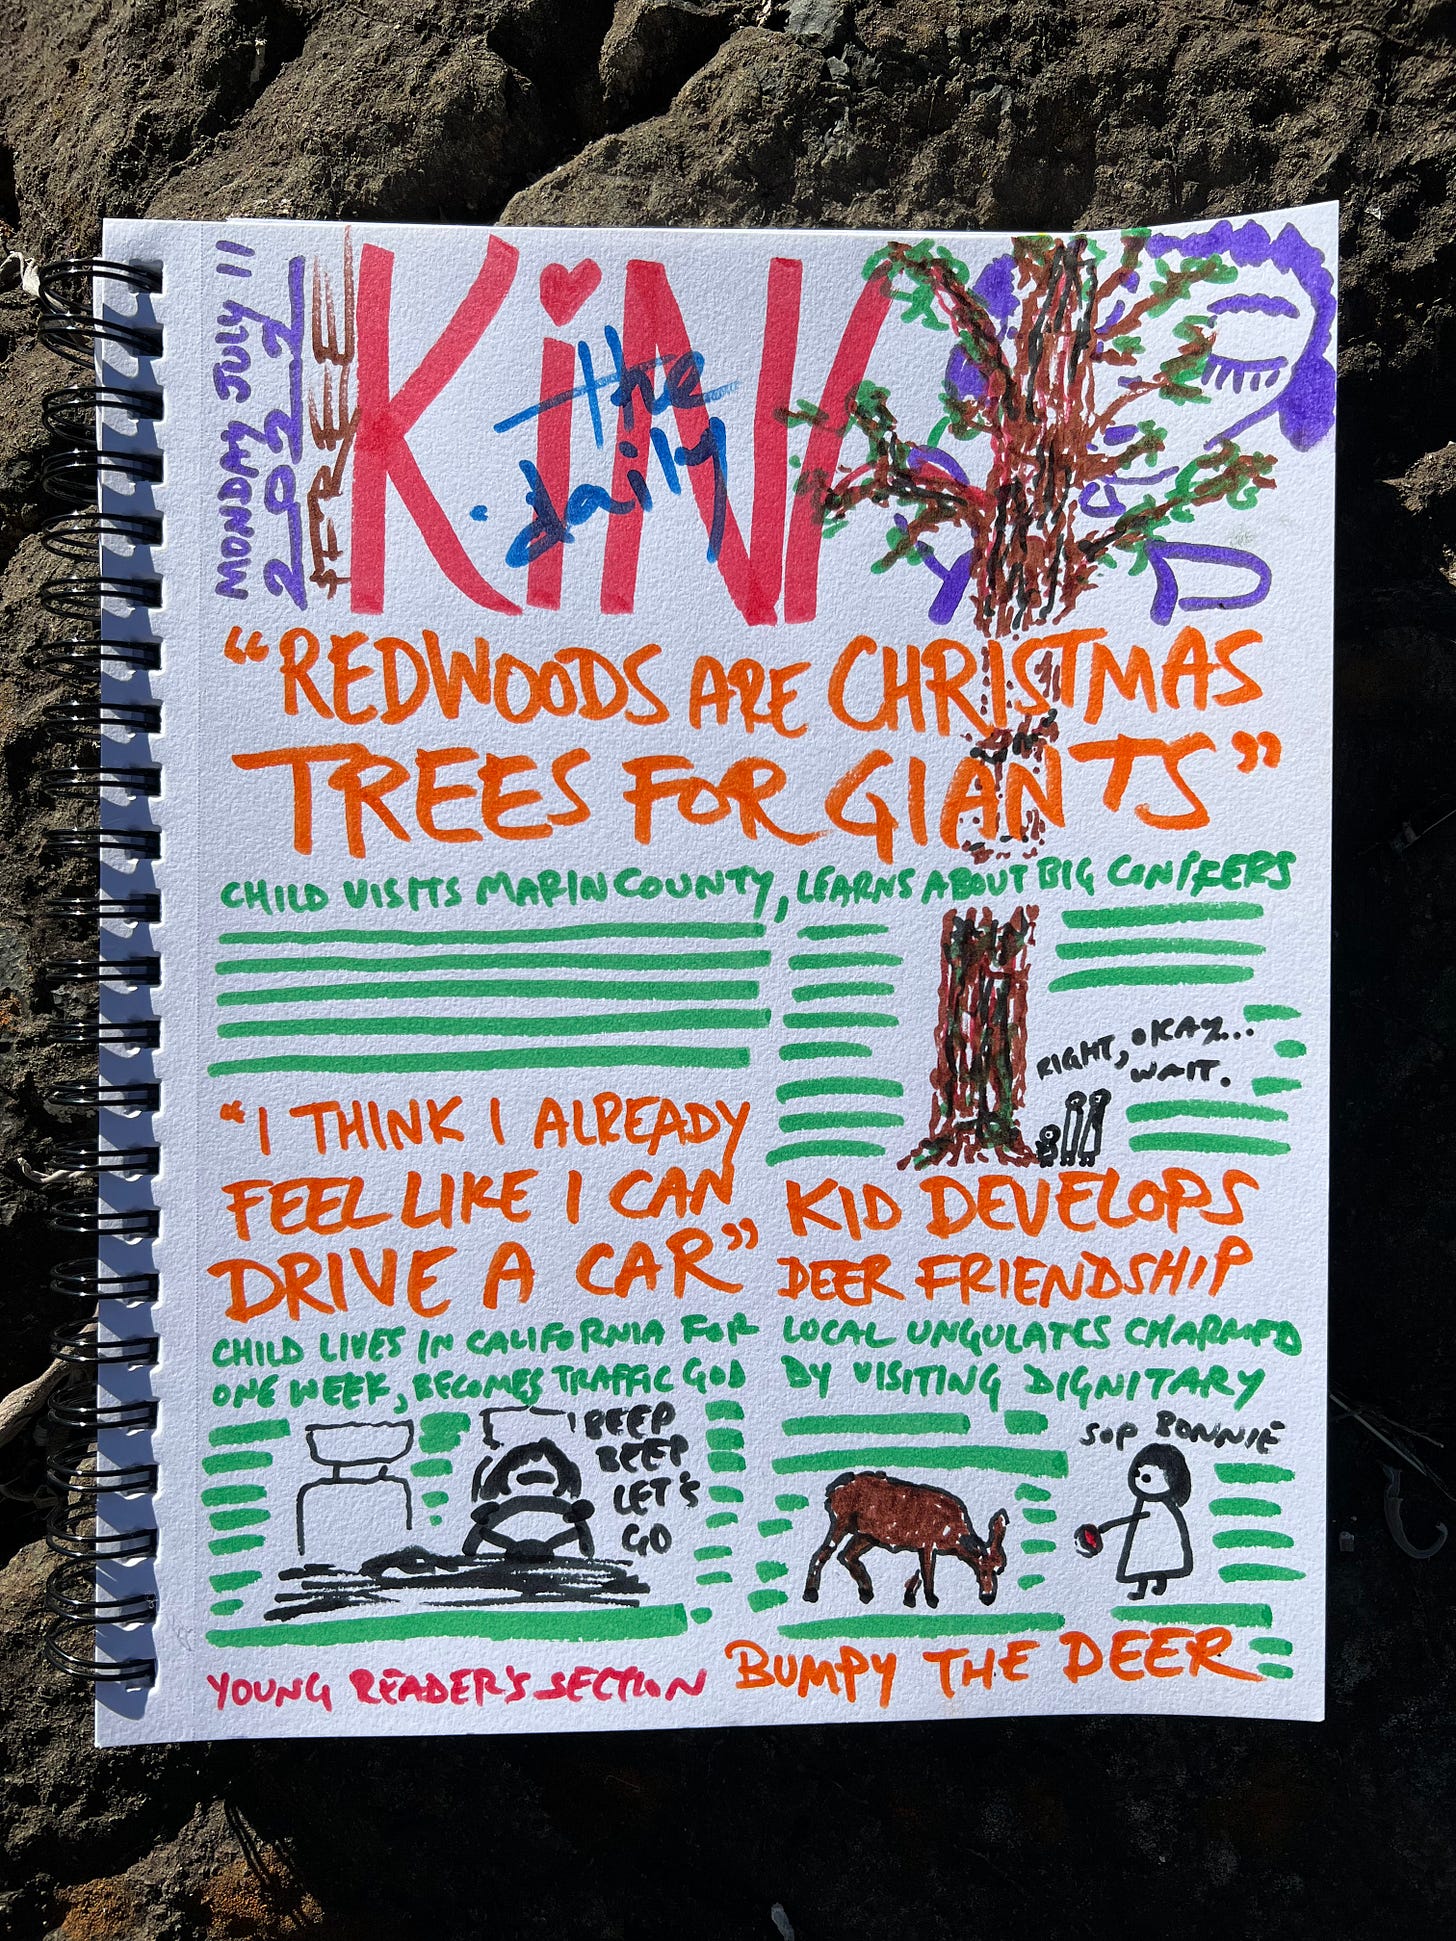 MONDAY JULY 11
2022
FREE
KiN
the
daily
"REDWOODS ARE CHRISTMAS
TREES FOR GIANTS"
CHILD VISITS MARIN COUNTY, LEARNS ABOUT BIG CONIFERS
RIGHT, OKAY...
WAIT.
"I THINK I ALREADY
FEEL LIKE I CAN
DRIVE A CAR"
CHILD LIVES IN CALIFORNIA FOR
ONE WEEK, BECOMES TRAFFIC GOD
BEEP
BEEP
LET'S
GO
KID DEVELOPS
DEER FRIENDSHIP
LOCAL UNGULATES CHARMED
BY VISITING DIGNITARY
SUP BONNIE
YOUNG READER'S SECTION
BUMPY THE DEER